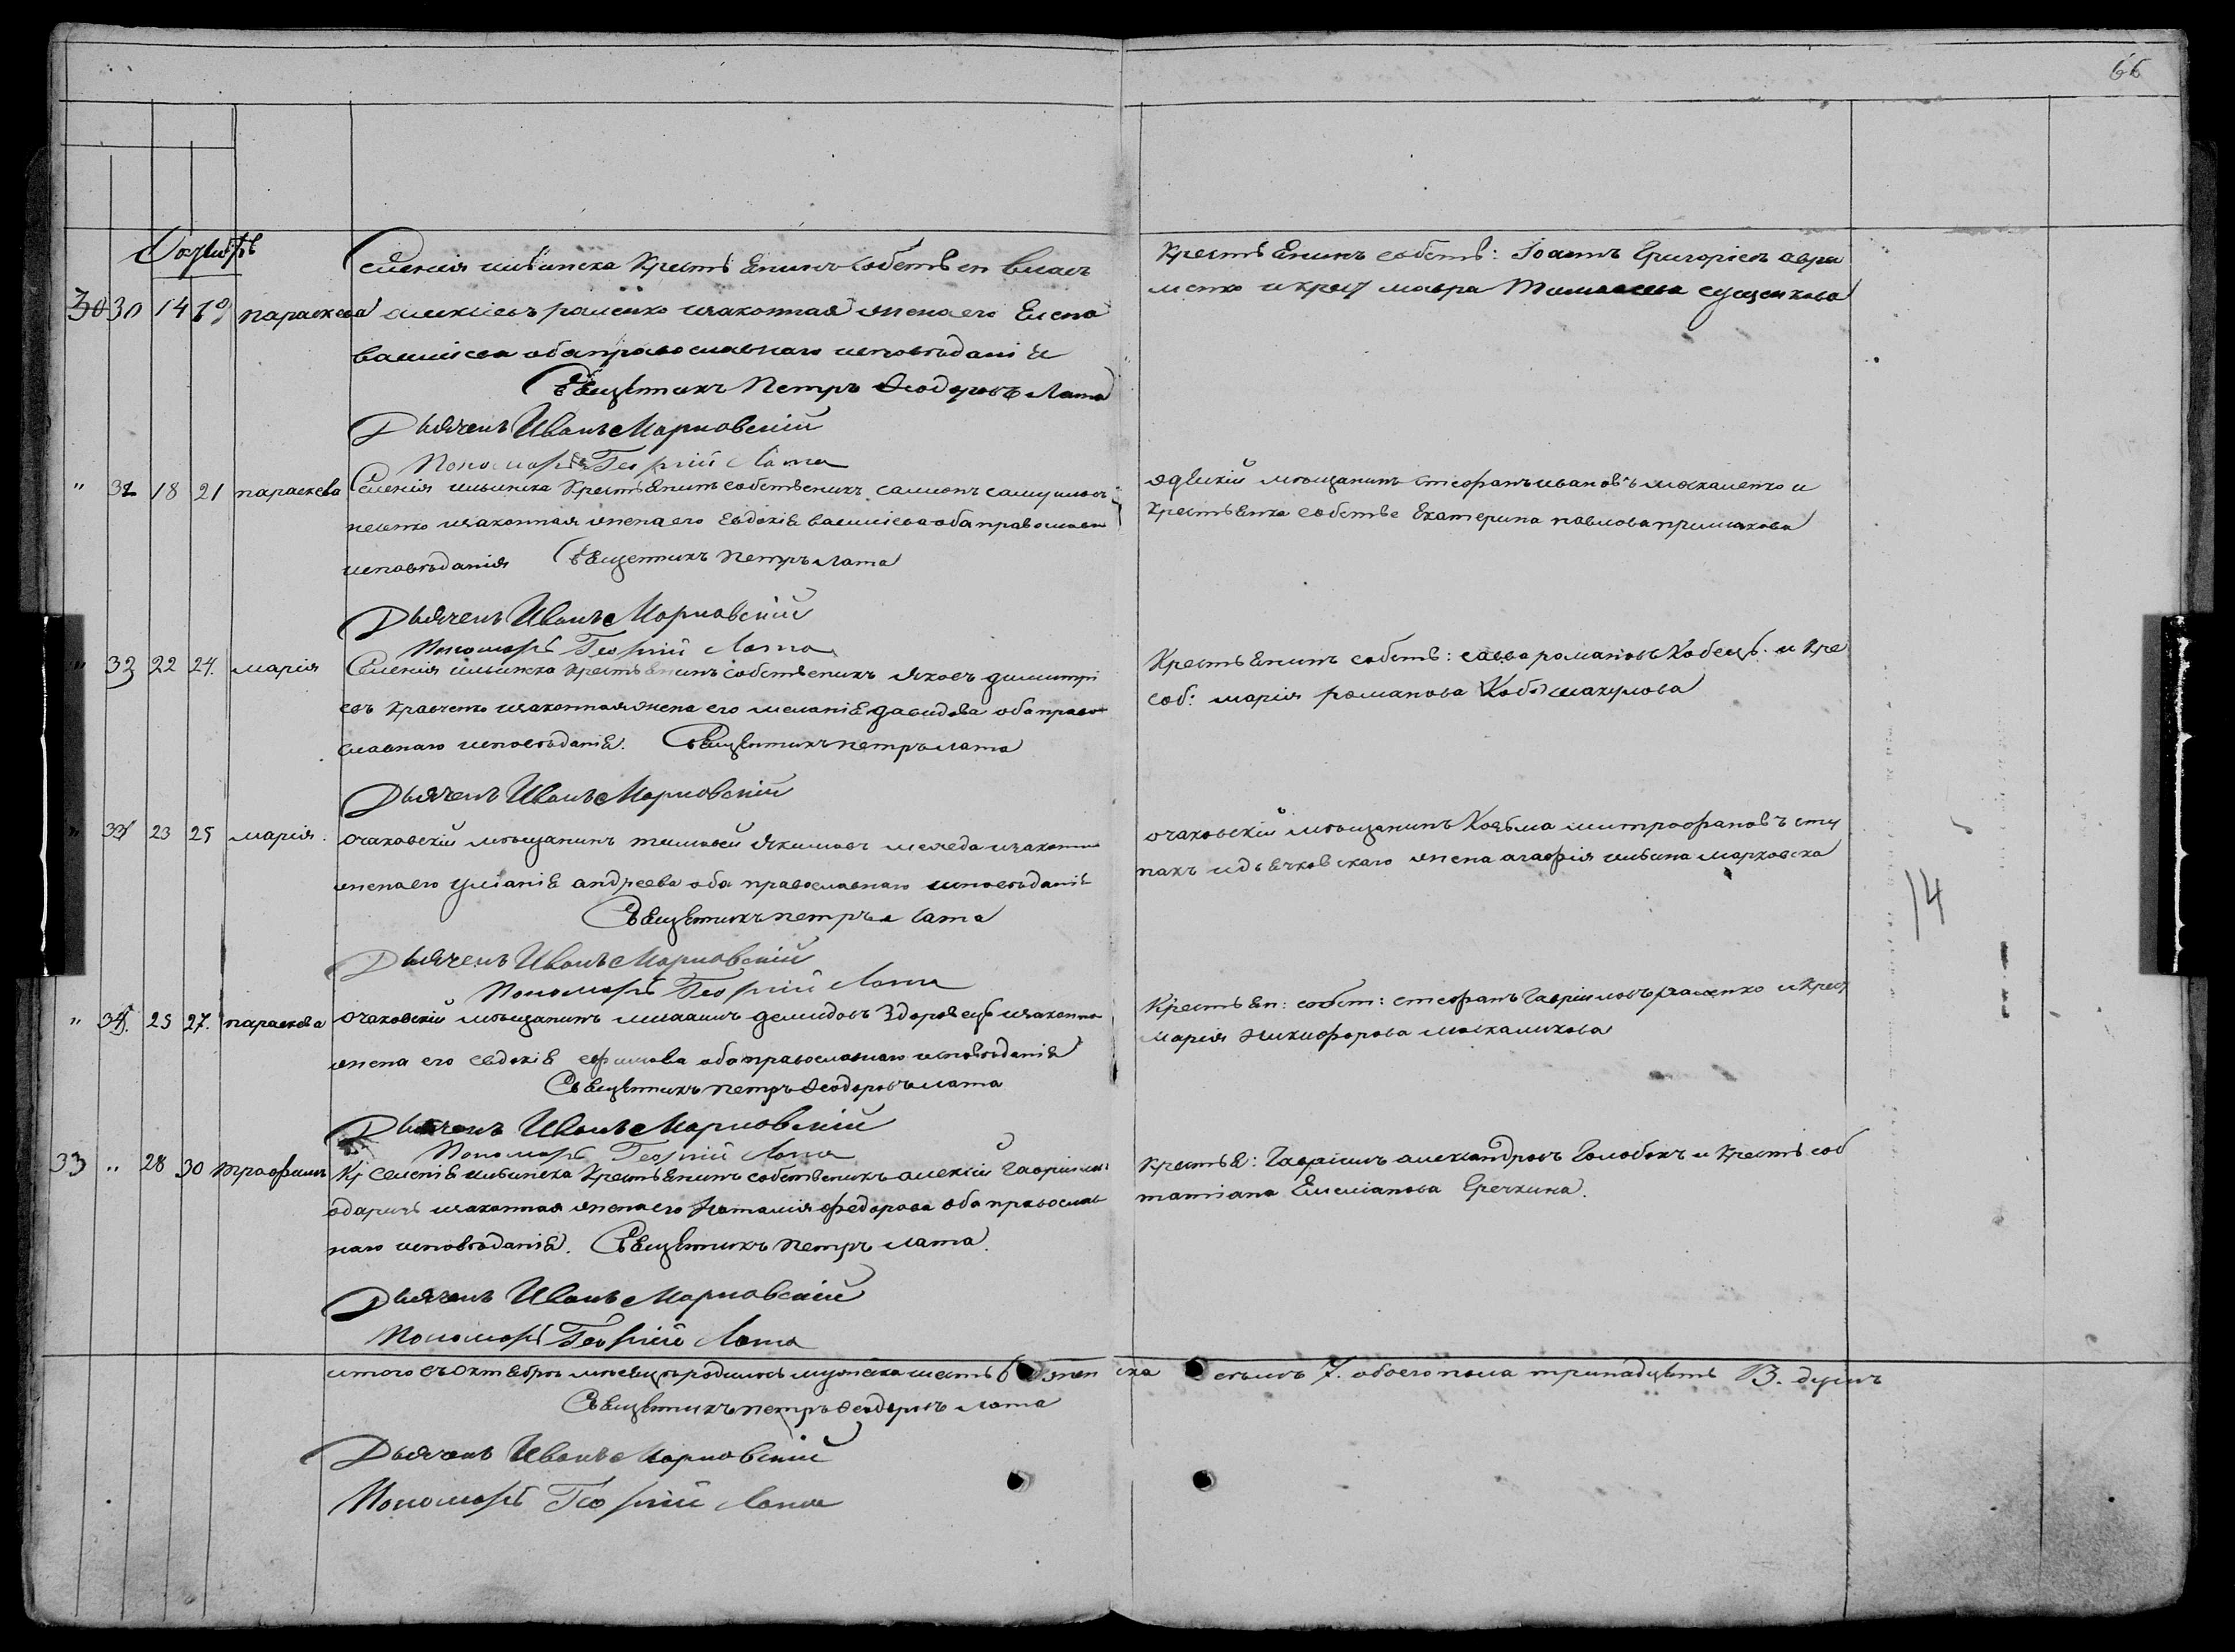 66
Октябрь
30 30 14 19 параскева
Селенія ильинска Крестьенинъ собствен власъ
алексіевъ раменко изаконная женаего Елена
василіева обаправославнаго исповѣданіе
Свещенникъ Петръ Ѳеодоровъ Лата
Дьячекъ Иванъ Марковскій
Пономарь Георгій Лата
Крестьенинъ собств: Іоаннъ Григоріевъ авра
менко икрест мавра Тимоѳеева сущенкова
" 31 18 21 параскева
Селенія ильинска Крестьенинъ собственикъ самсонъ самуиловъ
ненко изаконная женаего Евдокіе василіева оба православн
исповѣданія Свещенникъ Петръ Лата
Дьячекъ Иванъ Марковскій
Пономарь Георгій Лата
мѣщанинъ стефанъ ивановъ москаленко и
крестьенка собстве Екатерина павлова примакова
" 32 22 24. марія
Селенія ильинска крестьенинъ собственикъ яковъ димитрі
евъ кравченко изаконнаяжена его меланіе давидова оба право
славнаго исповѣданіе. Свещенникъ петръ лата
Дьячекъ Иванъ Марковскій
Крестьенинъ собств: савва романовъ Кобецъ. и Кре
соб: марія романова
" 33 23 25 марія.
очаковскій мѣщанинъ тимофей якимовъ изаконна
женаего уліаніе андреева оба православнаго исповѣданіе
Свещенникъ петръ лата
Дьячекъ Иванъ Марковскій
Пономарь Георгій Лата
очаковскій мѣщанинъ Козьма митрофановъ сту
пакъ идьечковскаго жена агафія ильина марковска
14
" 34. 25 27. параскева
очаковскій мѣщанинъ михаилъ демидовъ Здоровецъ изаконна
жена его евдокіе ефимова обаправославнаго исповѣданіе
Свещенникъ петръ Ѳеодоровъ лата
Дьячекъ Иванъ Марковскій
Пономарь Георгій Лата
Крестьен: собст: стефанъ Гавріиловъ раменко и Крест
марія никифорова москаликова
33 " 28 30 трофимъ
Кр селеніе ильинска крестьенинъ собственикъ алексій Гавріилов
одаричъ изаконная женаего Наталія федорова оба православ
наго исповѣданіе. Свещенникъ петръ лата.
Дьячекъ Иванъ Марковскій
Пономарь Георгій Лата
крестье: Гавріилъ александровъ Голобокъ и Кресть соб
татіана Емеліанова Гречкина.
итого въ октебрѣ мѣсецѣ родилось мужеска шесть 6 жен ска семь 7. обоегопола тринадцеть 13. душъ
Свещенникъ петръ Ѳеодоровъ лата
Дьячекъ Иванъ Марковскій
Пономарь Георгій Лата